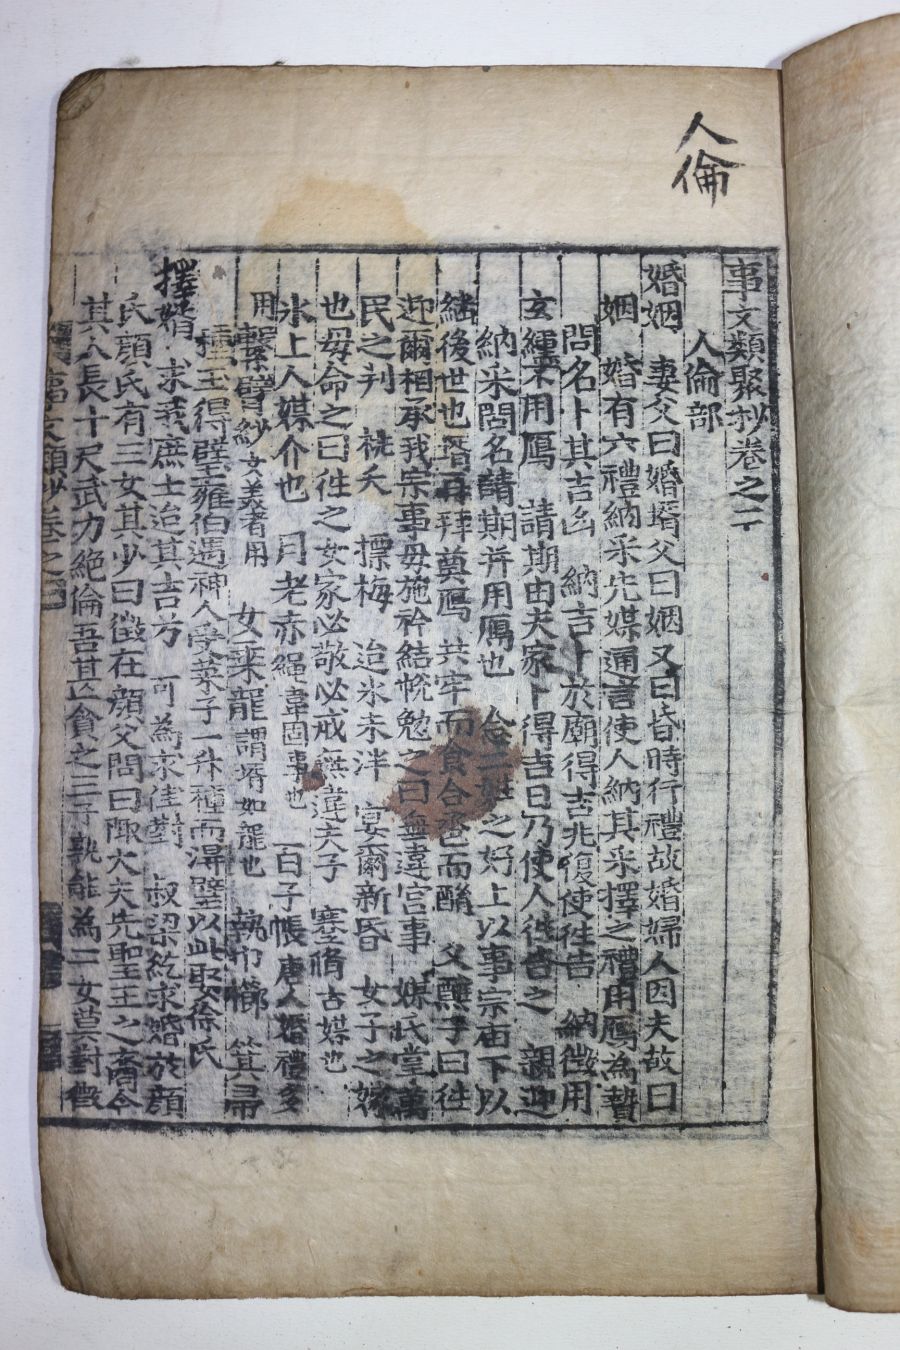 人倫
事文類聚抄卷之二
人倫部
婚姻 妻父曰婚壻父曰姻又曰昏時行禮故婚婦人因夫故曰
姻 婚有六禮納采先媒通言使人納其采擇之禮用鴈為贄
問名卜其吉凶 納吉卜於廟得吉兆復使徃告 納徵用
玄纁不用鴈 請期由夫家卜得吉日乃使人徃告之 親迎
納采問名請期并用鴈也 合二姓之好上以事宗庙下以
繼後世也 壻再拜奠鴈 共牢而食合巹而酳 父醮子曰徃
迎爾相承我宗事母施衿結帨勉之曰無違宮事 媒氏掌萬
民之判 祧夭 摽梅 迨氷未泮 宴爾新昏 女子之嫁
也母命之曰徃之女家必敬必戒無違夫子 蹇脩古媒也
氷上人媒介也 月老赤繩韋固事也 百子帳唐人婚禮多
用 繫臂紗女美者用 女乘龍謂壻如龍也 執巾櫛 箕帚
種玉得璧雍伯遇神人受菜子一升種而淂璧以此娶徐氏
擇婿 求我庶士迨其吉兮 可為求佳對 叔梁紇求婚於顔
氏顔氏有三女其少曰徵在顔父問曰陬大夫先聖王之裔今
其人長十尺武力絶倫吾甚貪之三子孰能為二女莫對徵